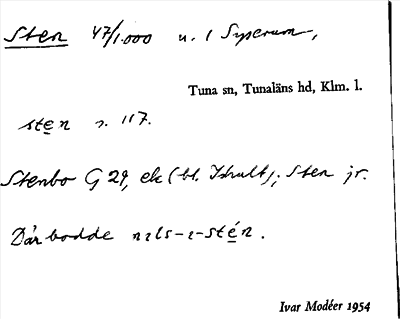 Sten 47/1.000 u. l
Tuna sn, Tunaläns hd, Klm. l.
sten s. 117.
Stenbo G 29, ek (bl. Ishult); Sten jr.
Där bodde nıls-ı-stén.
Ivar Modéer 1954